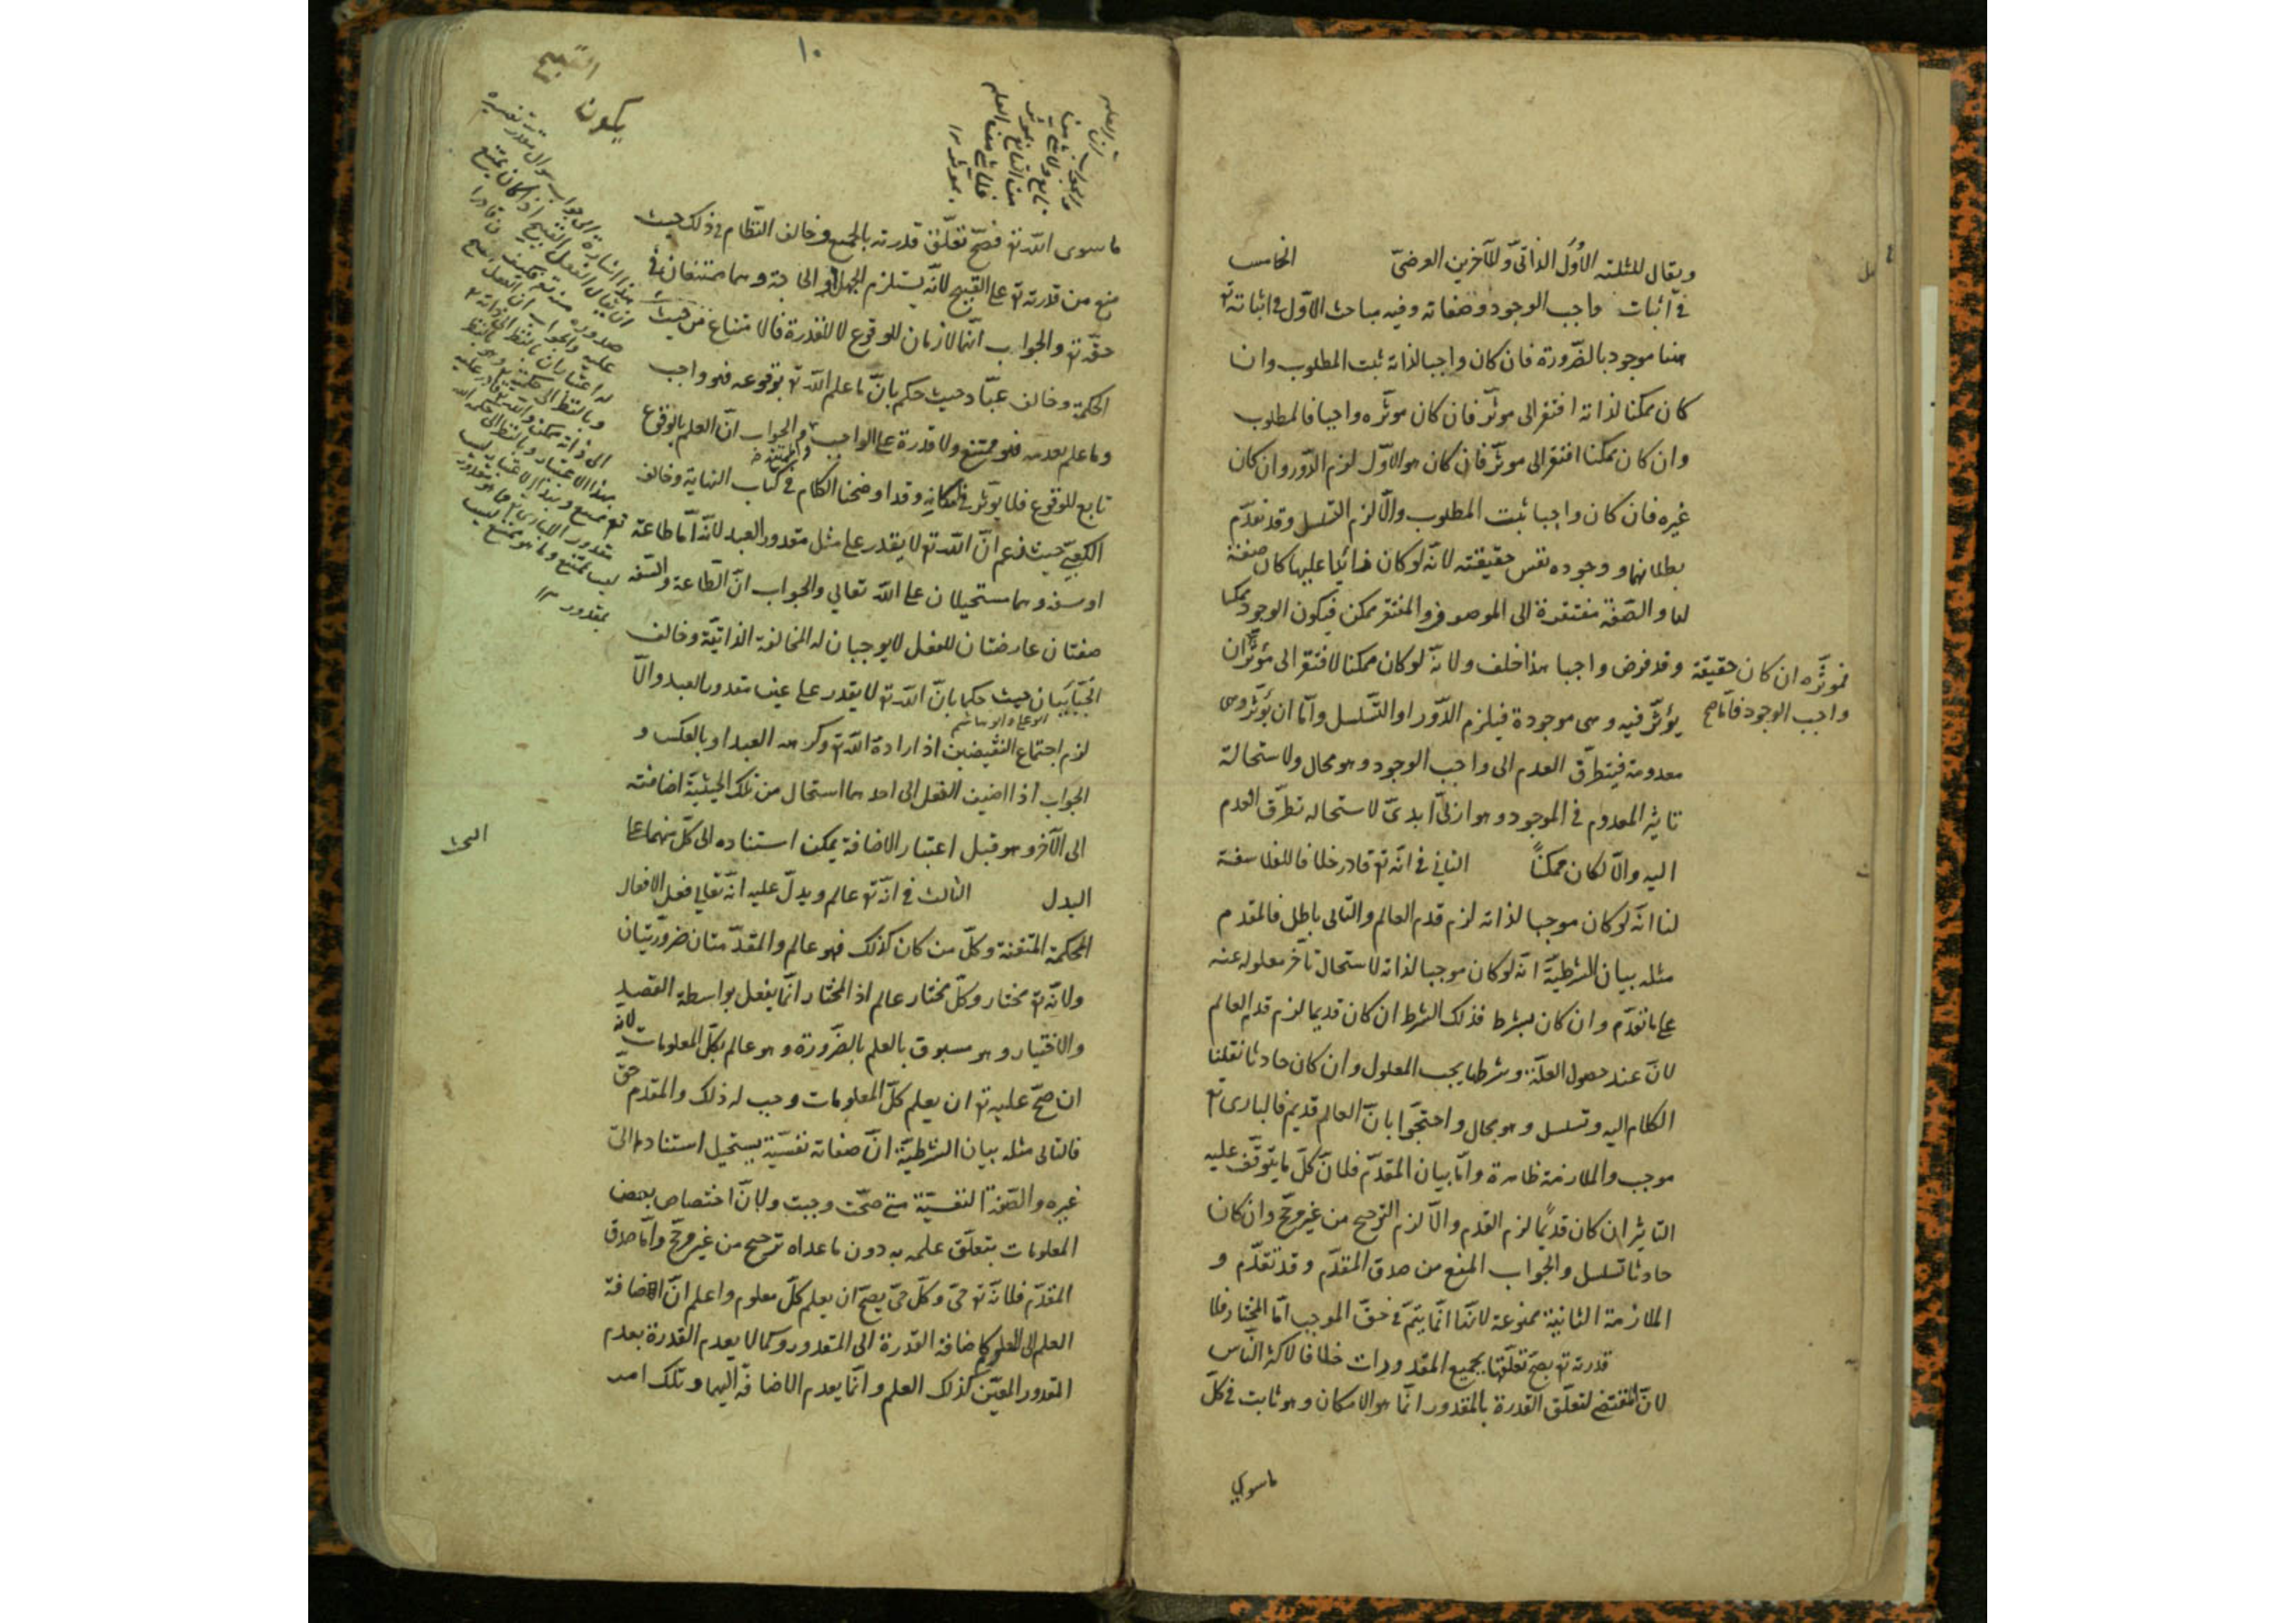 ويقال للثلثه الأُوَل الذاتىّ وللآخرين العرضىّ الخامس
فى اثبات واجب الوجود وصفاته وفيه مباحث الاوّل فى اثباته تع
هنا موجود بالضّرورة فان كان واجبا لذاته ثبت المطلوب وان
كان ممكنا لذاته افتقر الى موثّر فان كان موثّره واجبا فالمطلوب
وان كان ممكنا افتقر الى موثّر فان كان هو الاوّل لزم الدّور وان كان
غيره فان كان واجبا ثبت المطلوب والّا لزم التسلسل وقد تقدّم
بطلانهما ووجوده نفس حقيقته لانّه لو كان زائدا عليها كان صفة
لها والصّفة مفتقرة الى الموصوف والمفتقر ممكن فيكون الوجود ممكنا
فموثّره ان كان حقيقة
واجب الوجود فامّا صح
وقد فرض واجبا هذا خلف ولانّه لو كان ممكنا لافتقر الى مؤثّر ان
يؤثّر فيه وهى موجودة فيلزم الدّور او التّسلسل وامّا ان يؤثّر وهى
معدومة فيتطرّق العدم الى واجب الوجود وهو محال ولاستحالة
تاثير المعدوم فى الموجود وهو ازلىّ ابدىّ لاستحاله تطرّق العدم
اليه والّا لكان ممكنًا الثانى فى انّه تع قادر خلافا للفلاسفة
لنا انّه لو كان موجبا لذاته لزم قدم العالم والتالى باطل فالمقدم
مثله بيان الشرطيّة انّه لو كان موجبا لذاته لاستحال تاخّر معلوله عنه
على ما تقدّم وان كان بشرط فذلك الشرط ان كان قديما لزم قدم العالم
لانّ عند حصول العلّة وشرطها يجب المعلول وان كان حادثا نقلنا
الكلام اليه وتسلسل وهو محال واحتجّوا بانّ العالم قديم فالبارى تع
موجب والملازمة ظاهرة وامّا بيان المقدّم فلانّ كلّ ما يتوقّف عليه
التاثير ان كان قديمًا لزم القدم والّا لزم الترجيح من غير مرجّح وان كان
حادثا تسلسل والجواب المنع من صدق المقدّم وقد تقدّم و
الملازمة الثانية ممنوعة لانّها انّما يتمّ فى حقّ الموجب امّا المختار فلا
قدرته تع يصحّ تعلّقها بجميع المقدورات خلافا لاكثر النّاس
لانّ المقتضى لتعلّق القدرة بالمقدور انّما هو الامكان وهو ثابت فى كلّ
ماسوى
١٠
القبيح
يكون
ما سوى اللّه تع فصحّ تعلّق قدرته بالجميع وخالف النّظام فى ذلك حيث
منع من قدرته تع على القبيح لانّه يستلزم الجهل او الحاجة وهما ممتنعان فى
حقّه تع والجواب انّهما لازمان للوقوع لا للقدرة فالامتناع من حيث
الحكمة وخالف عبّاد حيث حكم بانّ ما علم اللّه تع بوقوعه فهو واجب
وما علم بعدمه فهو ممتنع ولا قدرة على الواجب والممتنع والجواب انّ العلم بالوقوع
تابع للوقوع فلا يوثّر فى امكانه وقد اوضحنا الكلام فى كتاب النهاية وخالف
الكعبىّ حيث زعم انّ اللّه تع لا يقدر على مثل مقدور العبد لانّه امّا طاعة
او سفه وهما مستحيلان على اللّه تعالى والجواب انّ الطّاعة والسّفه
صفتان عارضتان للفعل لا يوجبان له المخالفة الذاتيّة وخالف
الجبّائيان حيث حكما بانّ اللّه تع لا يقدر على عين مقدور العبد والّا
ابو على وابو هاشم
لزم اجتماع النقيضين اذا اراده اللّه تع وكرهه العبد او بالعكس و
الجواب اذا اضيف الفعل الى احدهما استحال من تلك الحيثيّة اضافته
الى الآخر وهو قبل اعتبار الاضافة يمكن استناده الى كلّ منهما على
البدل الثالث فى انّه تع عالم ويدلّ عليه انّه تعالى فعل الافعال
المحكمة المتقنة وكلّ من كان كذلك فهو عالم والمقدّمتان ضروريّتان
ولانّه تع مختار وكلّ مختار عالم اذ المختار انّما يفعل بواسطة القصد
والاختيار وهو مسبوق بالعلم بالضّرورة وهو عالم بكلّ المعلومات لانّه
ان صحّ عليه تع ان يعلم كلّ المعلومات وجب له ذلك والمقدّم حقّ
فالتالى مثله بيان الشرطيّة انّ صفاته نفسيّة يستحيل استنادها الى
غيره والصّفة النفسيّة متى صحّت وجبت ولانّ اختصاص بعض
المعلومات بتعلّق علمه به دون ما عداه ترجيح من غير مرجّح وامّا صدق
المقدّم فلانّه تع حىّ وكلّ حىّ يصحّ ان يعلم كلّ معلوم واعلم انّ اضافة
العلم الى المعلوم كاضافة القدرة الى المقدور وكما لا يعدم القدرة بعدم
المقدور المعيّن كذلك العلم وانّما يعدم الاضافة اليهما وتلك امر